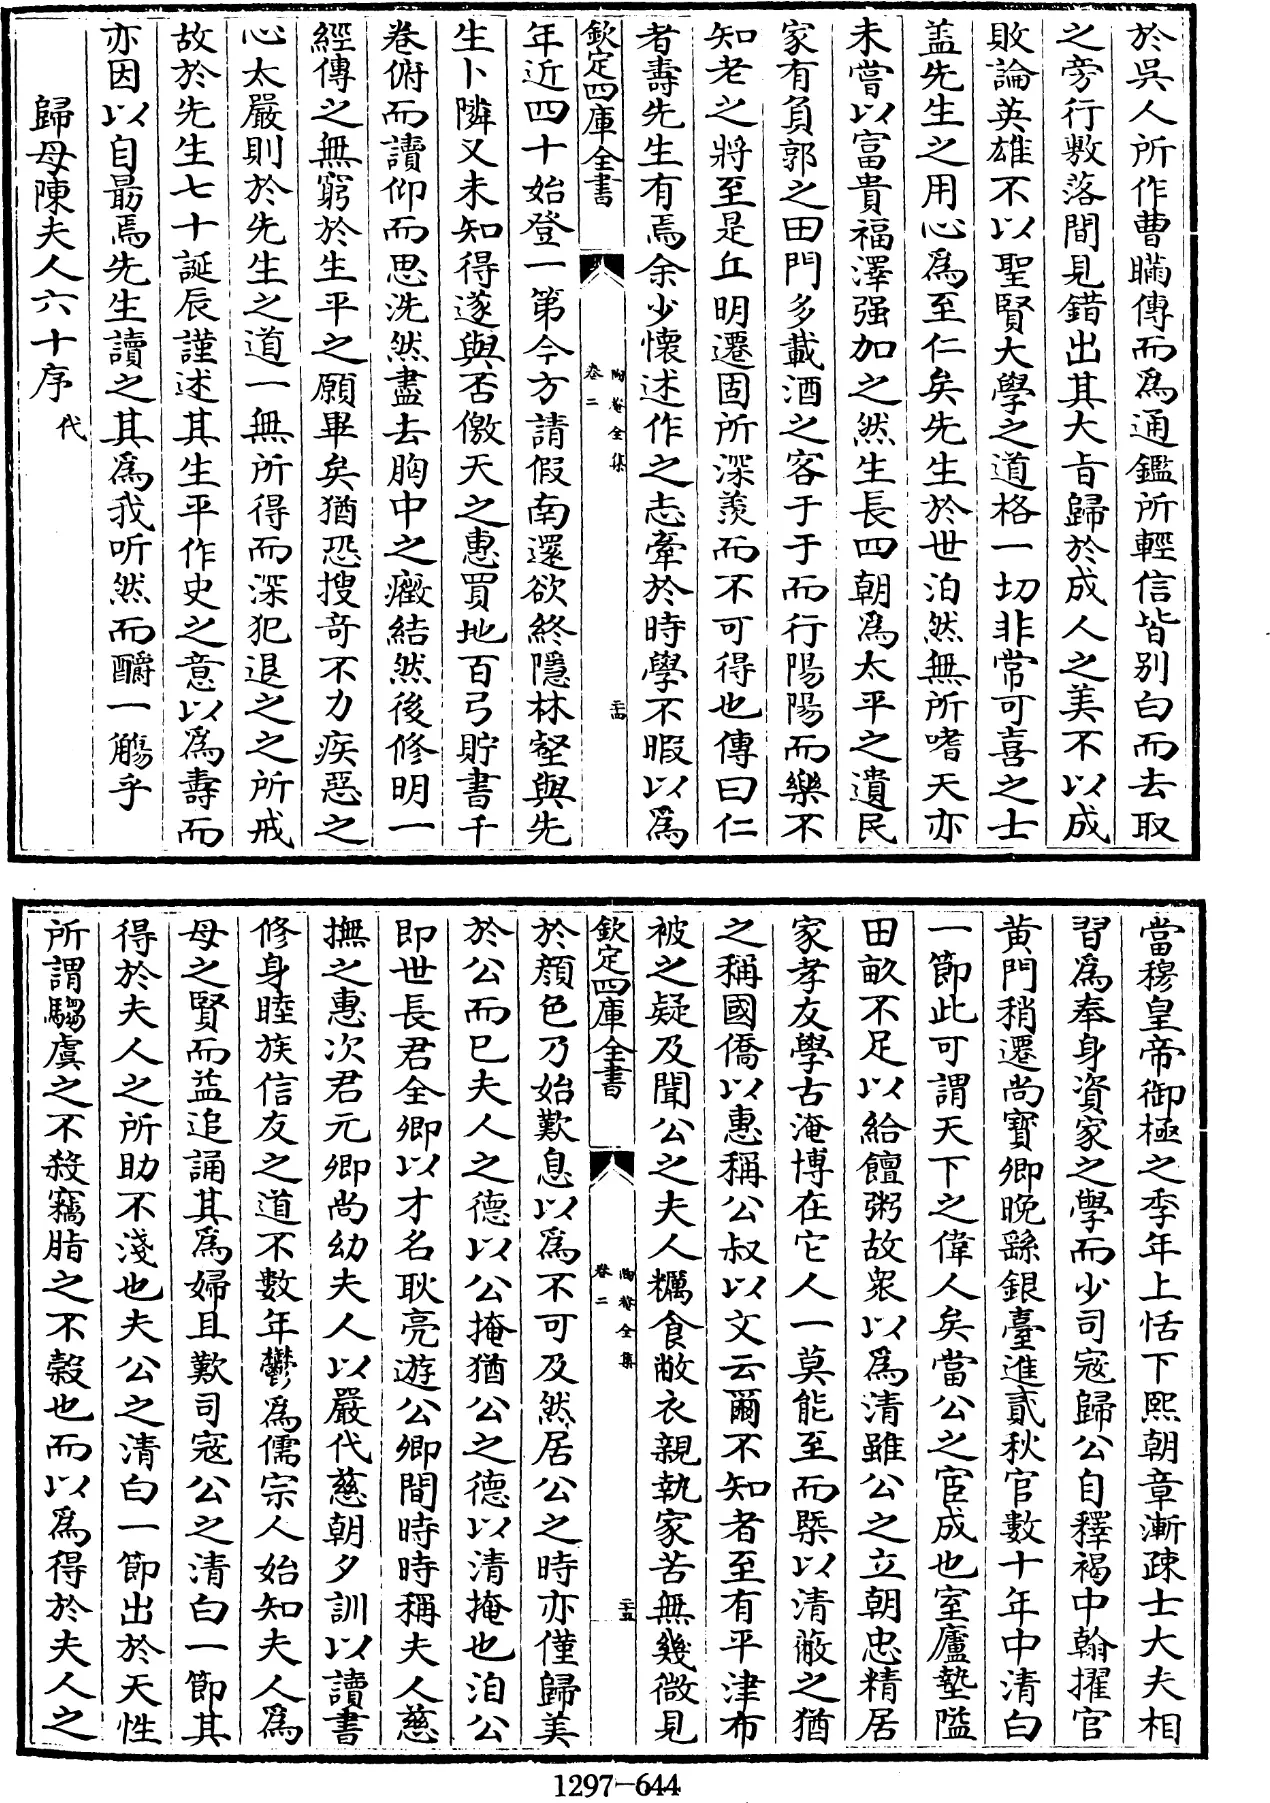 於吳人所作曹瞞傳而爲通鑑所輕信皆别白而去取
之旁行敷落間見錯出其大㫖歸於成人之美不以成
敗論英雄不以聖賢大學之道格一切非常可喜之士
盖先生之用心爲至仁矣先生於世泊然無所嗜天亦
未嘗以富貴福澤强加之然生長四朝爲太平之遺民
家有負郭之田門多載酒之客于于而行陽陽而樂不
知老之將至是丘明遷固所深羨而不可得也傳曰仁
者壽先生有焉余少懷述作之志牽於時學不暇以爲
欽定四庫全書
陶菴全集
卷二
二十四
年近四十始登一第今方請假南還欲終隱林壑與先
生卜隣又未知得遂與否儌天之惠買地百弓貯書千
卷俯而讀仰而思洗然盡去胸中之癥結然後修明一
經傳之無窮於生平之願畢矣猶恐搜竒不力疾惡之
心太嚴則於先生之道一無所得而深犯退之之所戒
故於先生七十誕辰謹述其生平作史之意以爲壽而
亦因以自朂焉先生讀之其爲我听然而釂一觴乎
歸母陳夫人六十序代
當穆皇帝御極之季年上恬下熙朝章漸疎士大夫相
習爲奉身資家之學而少司寇歸公自釋褐中翰擢官
黄門稍遷尚寳卿晚繇銀臺進貳秋官數十年中清白
一節此可謂天下之偉人矣當公之宦成也室廬墊隘
田畝不足以給饘粥故衆以爲清雖公之立朝忠精居
家孝友學古淹博在它人一莫能至而槩以清蔽之猶
之稱國僑以惠稱公叔以文云爾不知者至有平津布
被之疑及聞公之夫人糲食敝衣親執家苦無幾微見
欽定四庫全書
陶菴全集
卷二
二十五
於顔色乃始歎息以爲不可及然居公之時亦僅歸美
於公而已夫人之德以公掩猶公之德以清掩也洎公
即世長君全卿以才名耿亮遊公卿間時時稱夫人慈
撫之惠次君元卿尚幼夫人以嚴代慈朝夕訓以讀書
修身睦族信友之道不數年鬱爲儒宗人始知夫人爲
母之賢而益追誦其爲婦且歎司寇公之清白一節其
得於夫人之所助不淺也夫公之清白一節出於天性
所謂騶虞之不殺竊脂之不穀也而以爲得於夫人之
1297-644